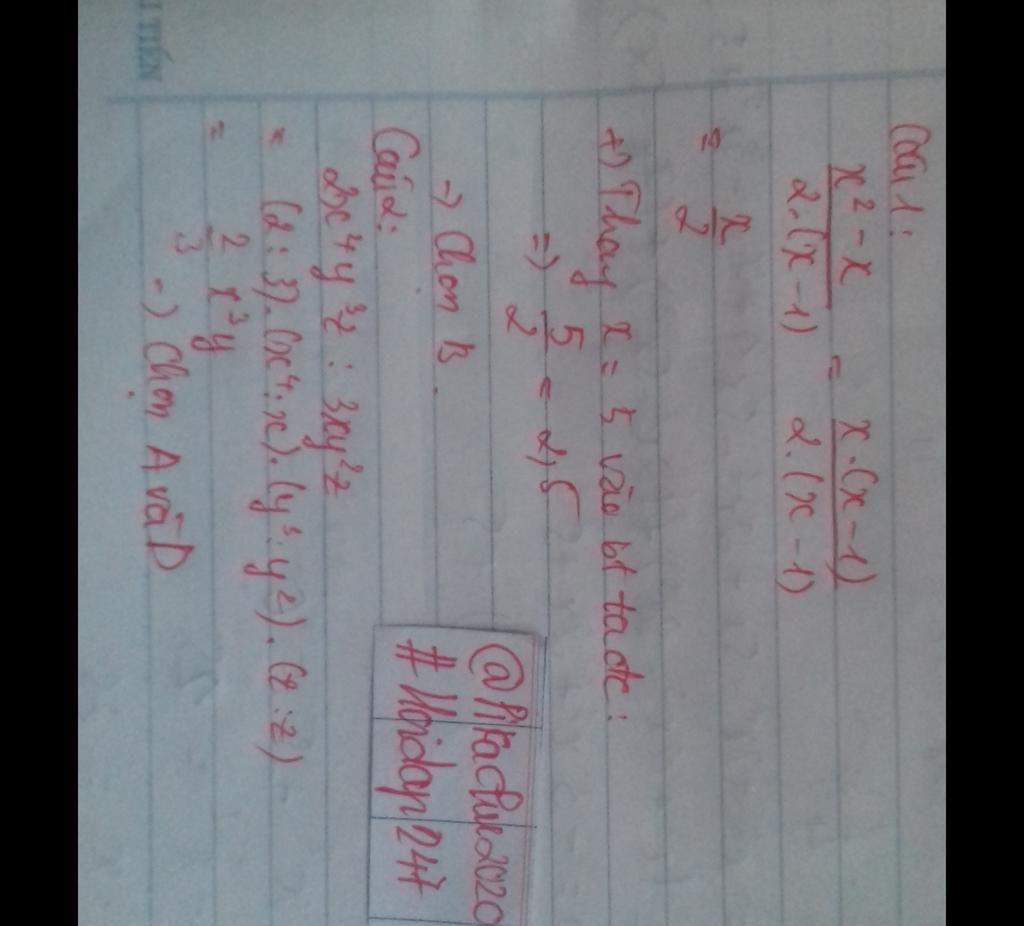 Câu 1:
x² - x / 2.(x - 1) = x.(x - 1) / 2.(x - 1)
= x / 2
+) Thay x = 5 vào bt ta đc:
=) 5 / 2 = 2,5
-) Chọn B.
Câu 2:
2x⁴y³z : 3xy²z
= (2 : 3).(x⁴ : x).(y³ : y²).(z : z)
= 2 / 3 x³y
-) Chọn A và D
@Pikachue2020
#Hoidap247